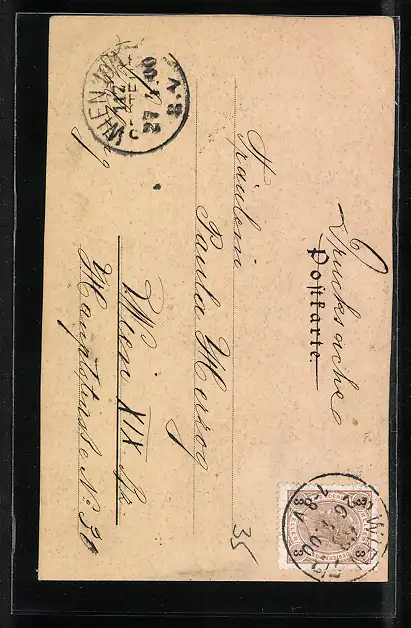 Drucksache
Postkarte.
Fräulein
Paula Herzog
Wien XIX
Hauptstraße No: 30
35
WIEN
27 00
8. V
3 3
3 3
WIEN
8-V
6 00